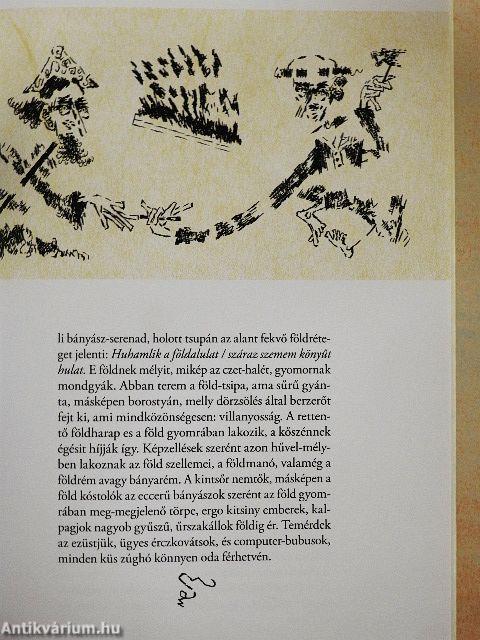 li bányász-serenad, holott tsupán az alant fekvő földréte-
get jelenti: Huhamlik a földalulat / száraz szemem könyüt
hulat. E földnek mélyit, mikép az czet-halét, gyomornak
mondgyák. Abban terem a föld-tsipa, ama sűrű gyán-
ta, másképen borostyán, melly dörzsölés által berzerőt
fejt ki, ami mindközönségesen: villanyosság. A retten-
tő földharap es a föld gyomrában lakozik, a kőszénnek
égésit híjják így. Képzellések szerént azon hűvel-mély-
ben lakoznak az föld szellemei, a földmanó, valamég a
földrém avagy bányarém. A kintsőr nemtők, másképen a
föld kóstolók az eccerű bányászok szerént az föld gyom-
rában meg-megjelenő törpe, ergo kitsiny emberek, kal-
pagjok nagyob gyűszű, űrszakállok földig ér. Temérdek
az ezüstjük, ügyes érczkovátsok, és computer-bubusok,
minden küs zúghó könnyen oda férhetvén.
Antikvárium.hu